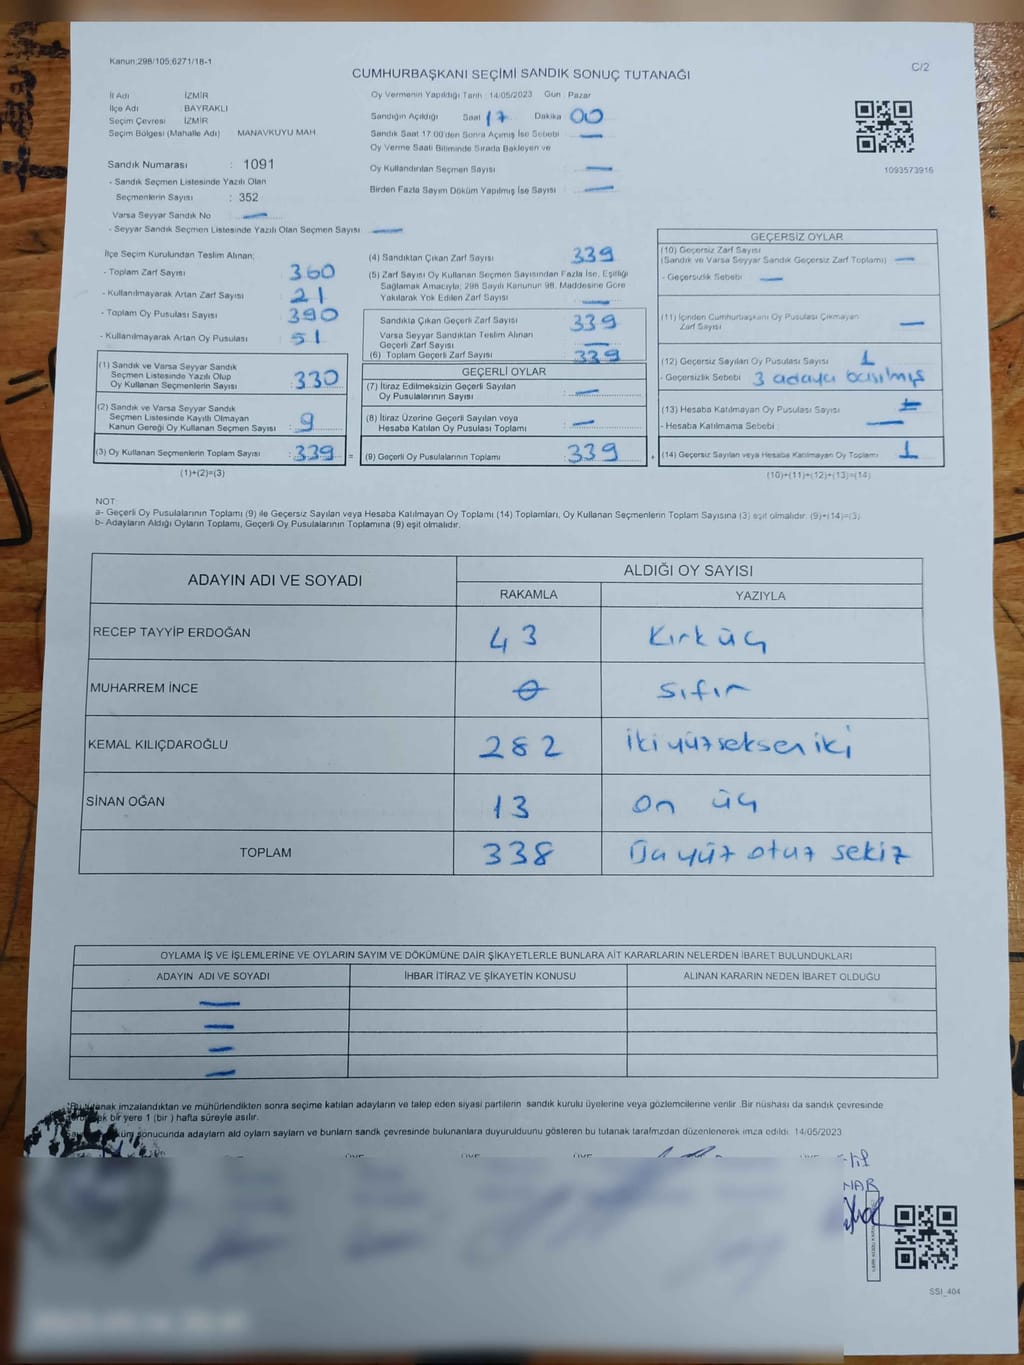 Kanun:298/105;6271/18-1
C/2
CUMHURBAŞKANI SEÇİMİ SANDIK SONUÇ TUTANAĞI
İl Adı İZMİR
İlçe Adı : BAYRAKLI
Seçim Çevresi İZMİR
Seçim Bölgesi (Mahalle Adı) : MANAVKUYU MAH
Sandık Numarası : 1091
- Sandık Seçmen Listesinde Yazılı Olan
Seçmenlerin Sayısı : 352
Varsa Seyyar Sandık No —
- Seyyar Sandık Seçmen Listesinde Yazılı Olan Seçmen Sayısı —
Oy Vermenin Yapıldığı Tarih : 14/05/2023 Gün : Pazar
Sandığın Açıldığı Saat 17 Dakika 00
Sandık Saat 17.00'den Sonra Açılmış İse Sebebi —
Oy Verme Saati Bitiminde Sırada Bekleyen ve
Oy Kullandırılan Seçmen Sayısı —
Birden Fazla Sayım Döküm Yapılmış İse Sayısı —
1093573916
İlçe Seçim Kurulundan Teslim Alınan;
- Toplam Zarf Sayısı 360
- Kullanılmayarak Artan Zarf Sayısı 21
- Toplam Oy Pusulası Sayısı 390
- Kullanılmayarak Artan Oy Pusulası 51
(1) Sandık ve Varsa Seyyar Sandık
Seçmen Listesinde Yazılı Olup
Oy Kullanan Seçmenlerin Sayısı : 330
(2) Sandık ve Varsa Seyyar Sandık
Seçmen Listesinde Kayıtlı Olmayan
Kanun Gereği Oy Kullanan Seçmen Sayısı : 9
(3) Oy Kullanan Seçmenlerin Toplam Sayısı : 339
(1)+(2)=(3)
(4) Sandıktan Çıkan Zarf Sayısı 339
(5) Zarf Sayısı Oy Kullanan Seçmen Sayısından Fazla İse, Eşitliği
Sağlamak Amacıyla; 298 Sayılı Kanunun 98. Maddesine Göre
Yakılarak Yok Edilen Zarf Sayısı —
Sandıkta Çıkan Geçerli Zarf Sayısı 339
Varsa Seyyar Sandıktan Teslim Alınan
Geçerli Zarf Sayısı —
(6) Toplam Geçerli Zarf Sayısı 339
GEÇERLİ OYLAR
(7) İtiraz Edilmeksizin Geçerli Sayılan
Oy Pusulalarının Sayısı —
(8) İtiraz Üzerine Geçerli Sayılan veya
Hesaba Katılan Oy Pusulası Toplamı —
= (9) Geçerli Oy Pusulalarının Toplamı 339
GEÇERSİZ OYLAR
(10) Geçersiz Zarf Sayısı
(Sandık ve Varsa Seyyar Sandık Geçersiz Zarf Toplamı) —
- Geçersizlik Sebebi —
(11) İçinden Cumhurbaşkanı Oy Pusulası Çıkmayan
Zarf Sayısı —
(12) Geçersiz Sayılan Oy Pusulası Sayısı 1
- Geçersizlik Sebebi 3 adaya basılmış
(13) Hesaba Katılmayan Oy Pusulası Sayısı
- Hesaba Katılmama Sebebi : —
+ (14) Geçersiz Sayılan veya Hesaba Katılmayan Oy Toplamı 1
(10)+(11)+(12)+(13)=(14)
NOT:
a- Geçerli Oy Pusulalarının Toplamı (9) ile Geçersiz Sayılan veya Hesaba Katılmayan Oy Toplamı (14) Toplamları, Oy Kullanan Seçmenlerin Toplam Sayısına (3) eşit olmalıdır. (9)+(14)=(3)
b- Adayların Aldığı Oyların Toplamı, Geçerli Oy Pusulalarının Toplamına (9) eşit olmalıdır.
ADAYIN ADI VE SOYADI ALDIĞI OY SAYISI
RAKAMLA YAZIYLA
RECEP TAYYİP ERDOĞAN 43 Kırk üç
MUHARREM İNCE 0 sıfır
KEMAL KILIÇDAROĞLU 282 iki yüz seksen iki
SİNAN OĞAN 13 on üç
TOPLAM 338 Üç yüz otuz sekiz
OYLAMA İŞ VE İŞLEMLERİNE VE OYLARIN SAYIM VE DÖKÜMÜNE DAİR ŞİKAYETLERLE BUNLARA AİT KARARLARIN NELERDEN İBARET BULUNDUKLARI
ADAYIN ADI VE SOYADI İHBAR İTİRAZ VE ŞİKAYETİN KONUSU ALINAN KARARIN NEDEN İBARET OLDUĞU
—
—
—
—
tutanak imzalandıktan ve mühürlendikten sonra seçime katılan adayların ve talep eden siyasi partilerin sandık kurulu üyelerine veya gözlemcilerine verilir. Bir nüshası da sandık çevresinde
bir yere 1 (bir) hafta süreyle asılır.
sonucunda adayların ald oyların sayların ve bunların sandk çevresinde bulunanlara duyurulduunu gösteren bu tutanak tarafmzdan düzenlenerek imza edildi. 14/05/2023
SSI_404